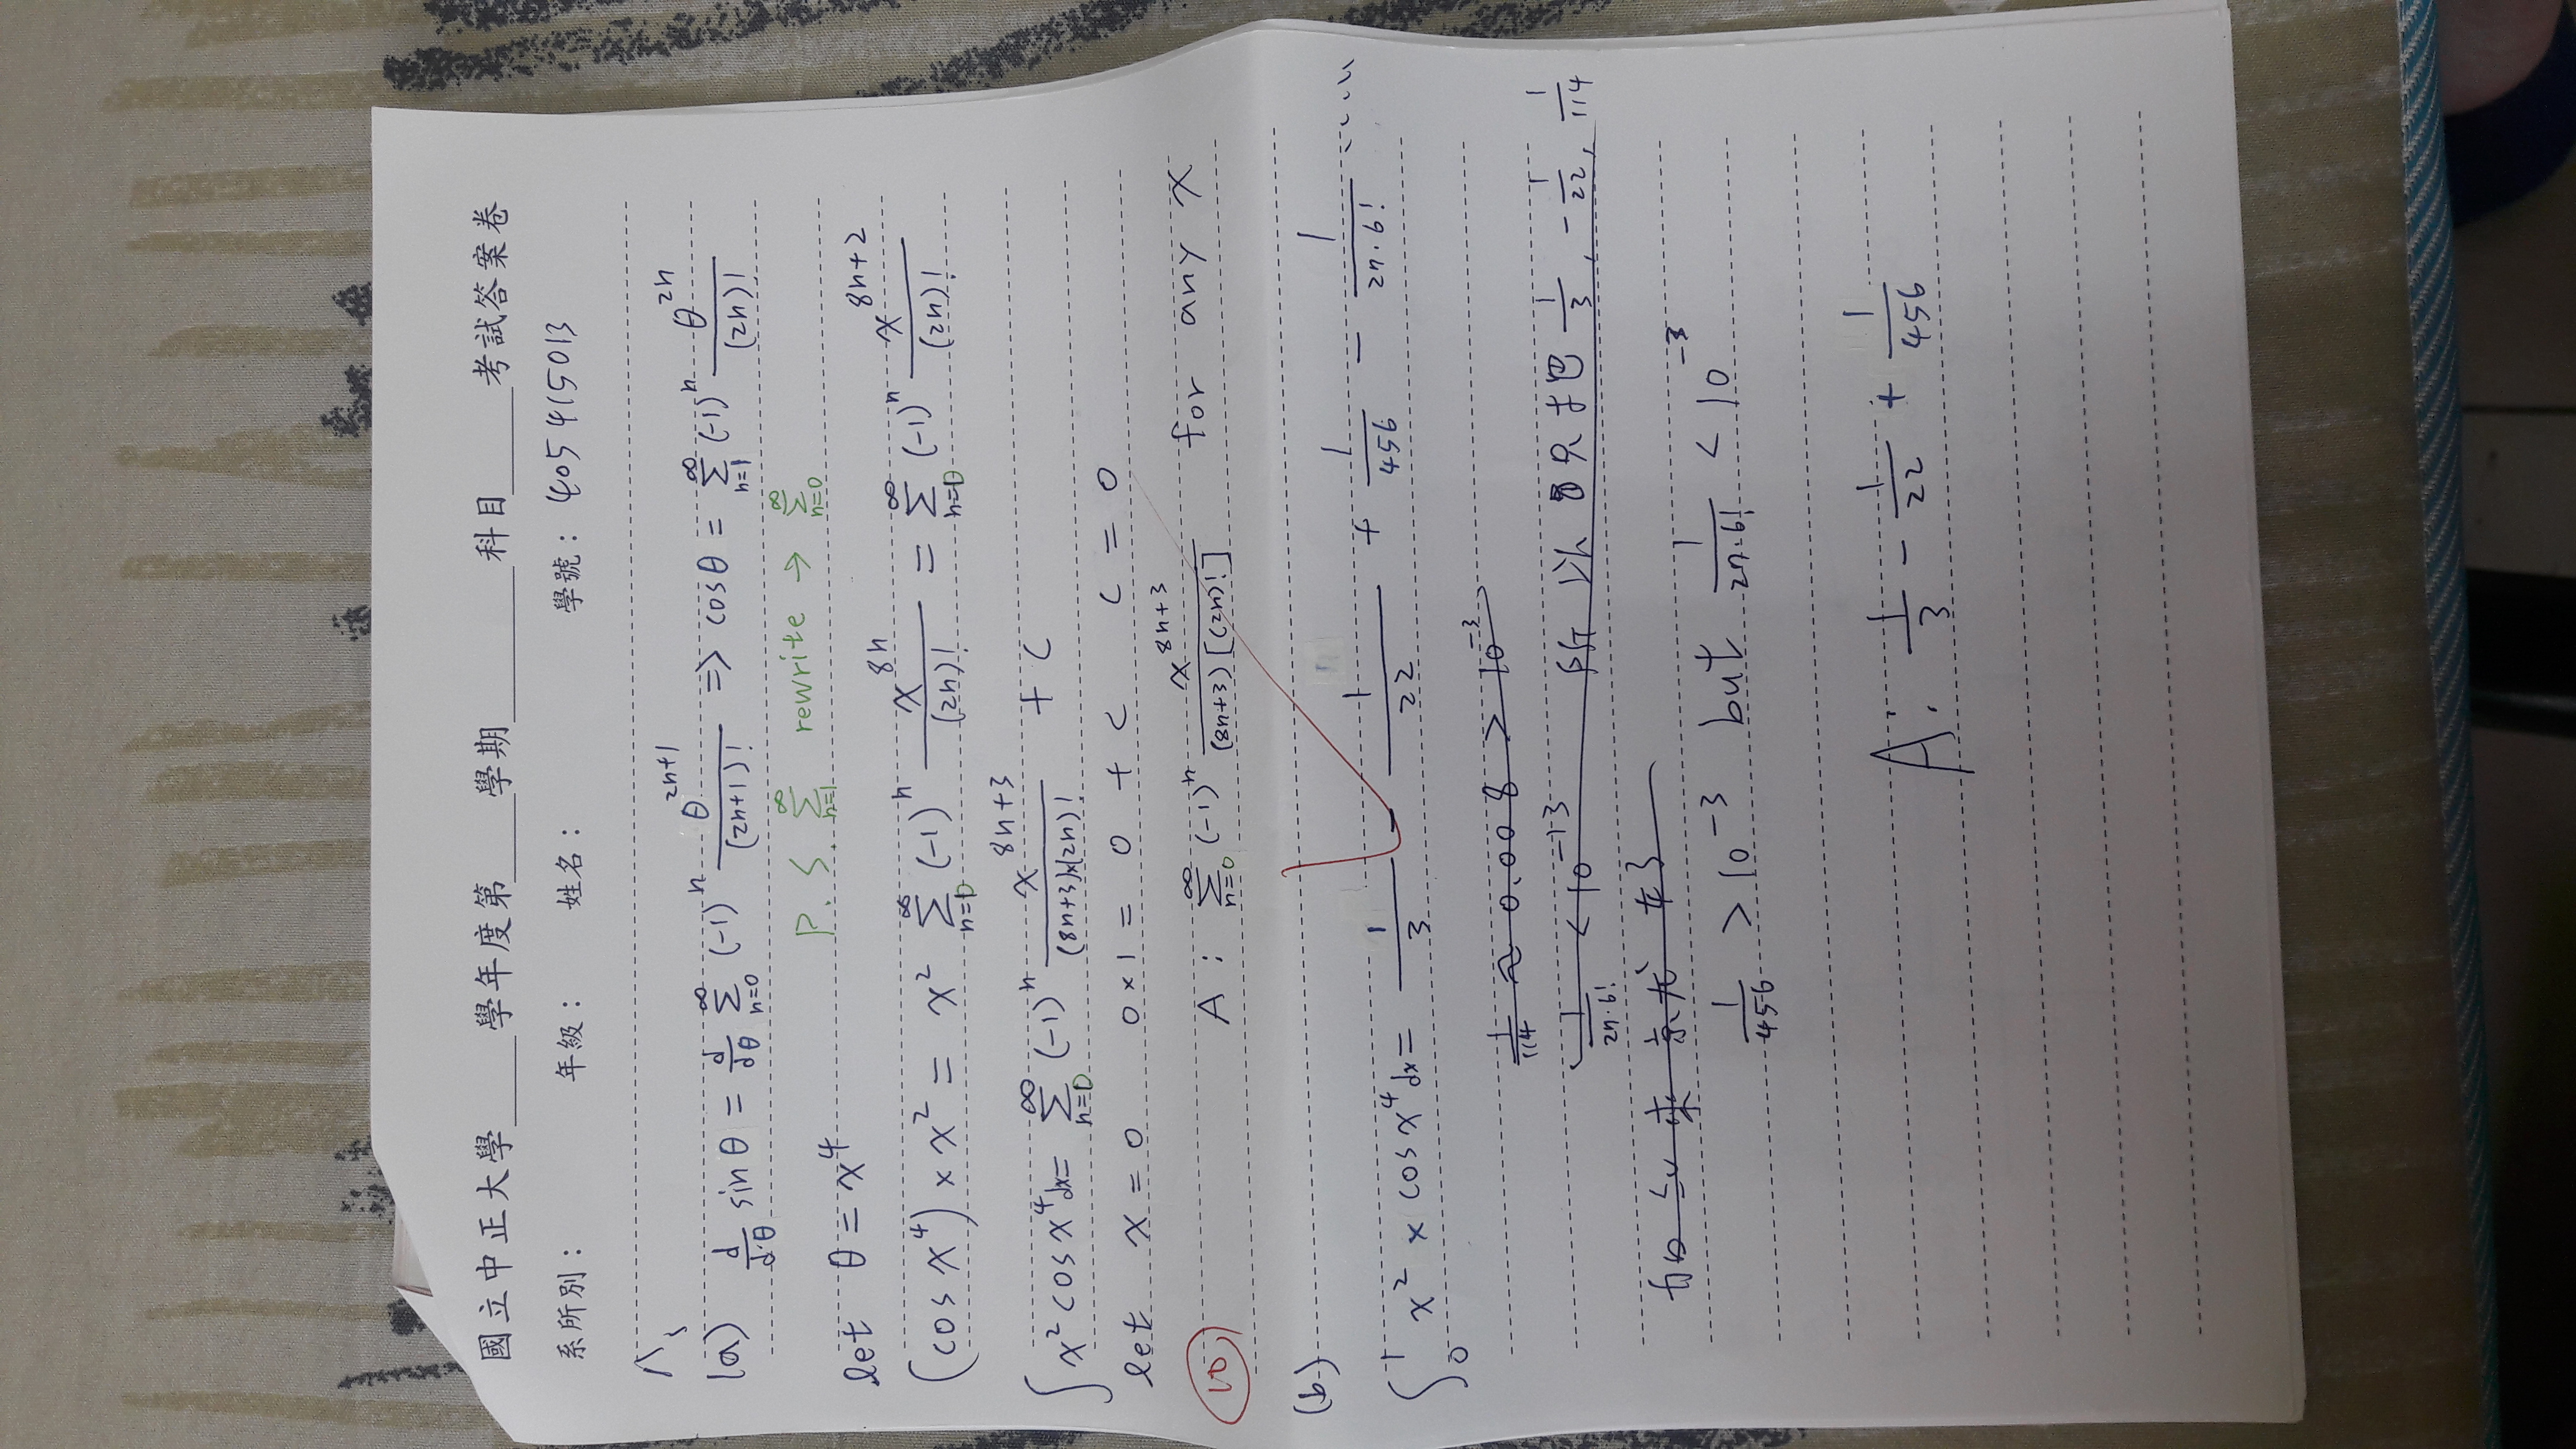 國立中正大學_____學年度第_____學期_________科目______考試答案卷
系所別： 年級： 姓名： 學號： 405415013
1、
(a) d/dθ sinθ = d/dθ ∑_{n=0}^{∞} (-1)^n θ^{2n+1}/(2n+1)! => cosθ = ∑_{n=1}^{∞} (-1)^n θ^{2n}/(2n)!
P.S. ∑_{n=1}^{∞} rewrite → ∑_{n=0}^{∞}
let θ = x^4
(cos x^4) × x^2 = x^2 ∑_{n=0}^{∞} (-1)^n x^{8n}/(2n)! = ∑_{n=0}^{∞} (-1)^n x^{8n+2}/(2n)!
∫ x^2 cos x^4 dx = ∑_{n=0}^{∞} (-1)^n x^{8n+3}/((8n+3)×(2n)!) + c
let x = 0 0×1 = 0 + c c = 0
10
A : ∑_{n=0}^{∞} (-1)^n x^{8n+3}/((8n+3)[(2n)!]) for any x
(b)
∫_0^1 x^2 × cos x^4 dx = 1/3 - 1/22 + 1/456 - 1/(27·6!) ......
1/114 ≈ 0.008 > 10^{-3}
1/(27·6!) < 10^{-3} 所以只把 1/3, -1/22, 1/114
加起來
1/456 > 10^{-3} but 1/(27·6!) < 10^{-3}
A: 1/3 - 1/22 + 1/456